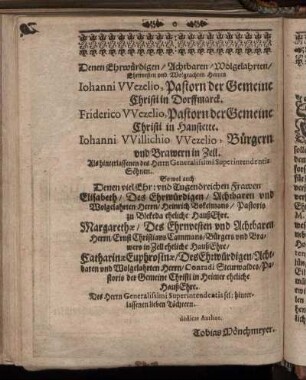 Denen Ehrwürdigen / Achtbaren / Wolgelahrten /
Ehrnvesten und Wolgeachten Herren
Iohanni VVezelio, Pastorn der Gemeine
Christi in Dorffmarck.
Friderico VVezelio, Pastorn der Gemeine
Christi in
Iohanni VVillichio VVezelio, Bürgern
vnd Brawern in Zell.
Als hinterlassenen des Herrn Generalissimi Superintendentis
Söhnen.
So wol auch
Denen viel Ehr: vnd Tugendreichen Frawen
Elisabeth / Des Ehrwürdigen / Achtbaren vnd
Wolgelahrten Herrn / Heinrich Pastoris
zu eheliche HaußEhre.
Margarethæ / Des Ehrnvesten vnd Achtbaren
Herrn / Ernst Christians Cammans / Bürgers vnd Bra-
wers in Zell eheliche HaußEhre /
Catharinæ Euphrosinæ / Des Ehrwürdigen / Acht-
baren vnd Wolgelahrten Herrn / Conradi Steurwaldes / Pa-
storis der Gemeine Christi in eheliche
HaußEhre.
Des Herrn Generalissimi Superintendentis sel: hinter-
lassenen lieben Töchtern.
Author.
Tobias Mönchmeyer.